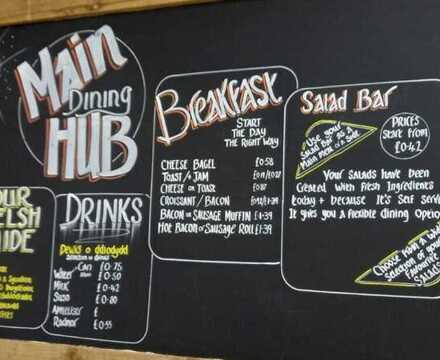 Main
Dining
HUB
Breakfast
START
THE DAY
THE RIGHT WAY
CHEESE BAGEL £0.58
TOAST/JAM
CHEESE ON TOAST
CROISSANT / BACON
BACON OR SAUSAGE MUFFIN £1.39
HOT BACON OR SAUSAGE ROLL £1.39
Salad Bar
PRICES
Start from
£0.42
Use your
Salad Bar as a
Main meal or a Side
Your Salads have been
Created With Fresh Ingredients
today + because It's Self Serve
It gives you a flexible dining Option
Choose from a
Selection of your
Favourite
SALADS
DRINKS
Dewis o ddiodydd
Selection of drinks
Can £0.75
Water £0.50
Milk £0.42
Suso £0.80
Appletiser £
Radnor £0.55
OUR
ELSH
IDE